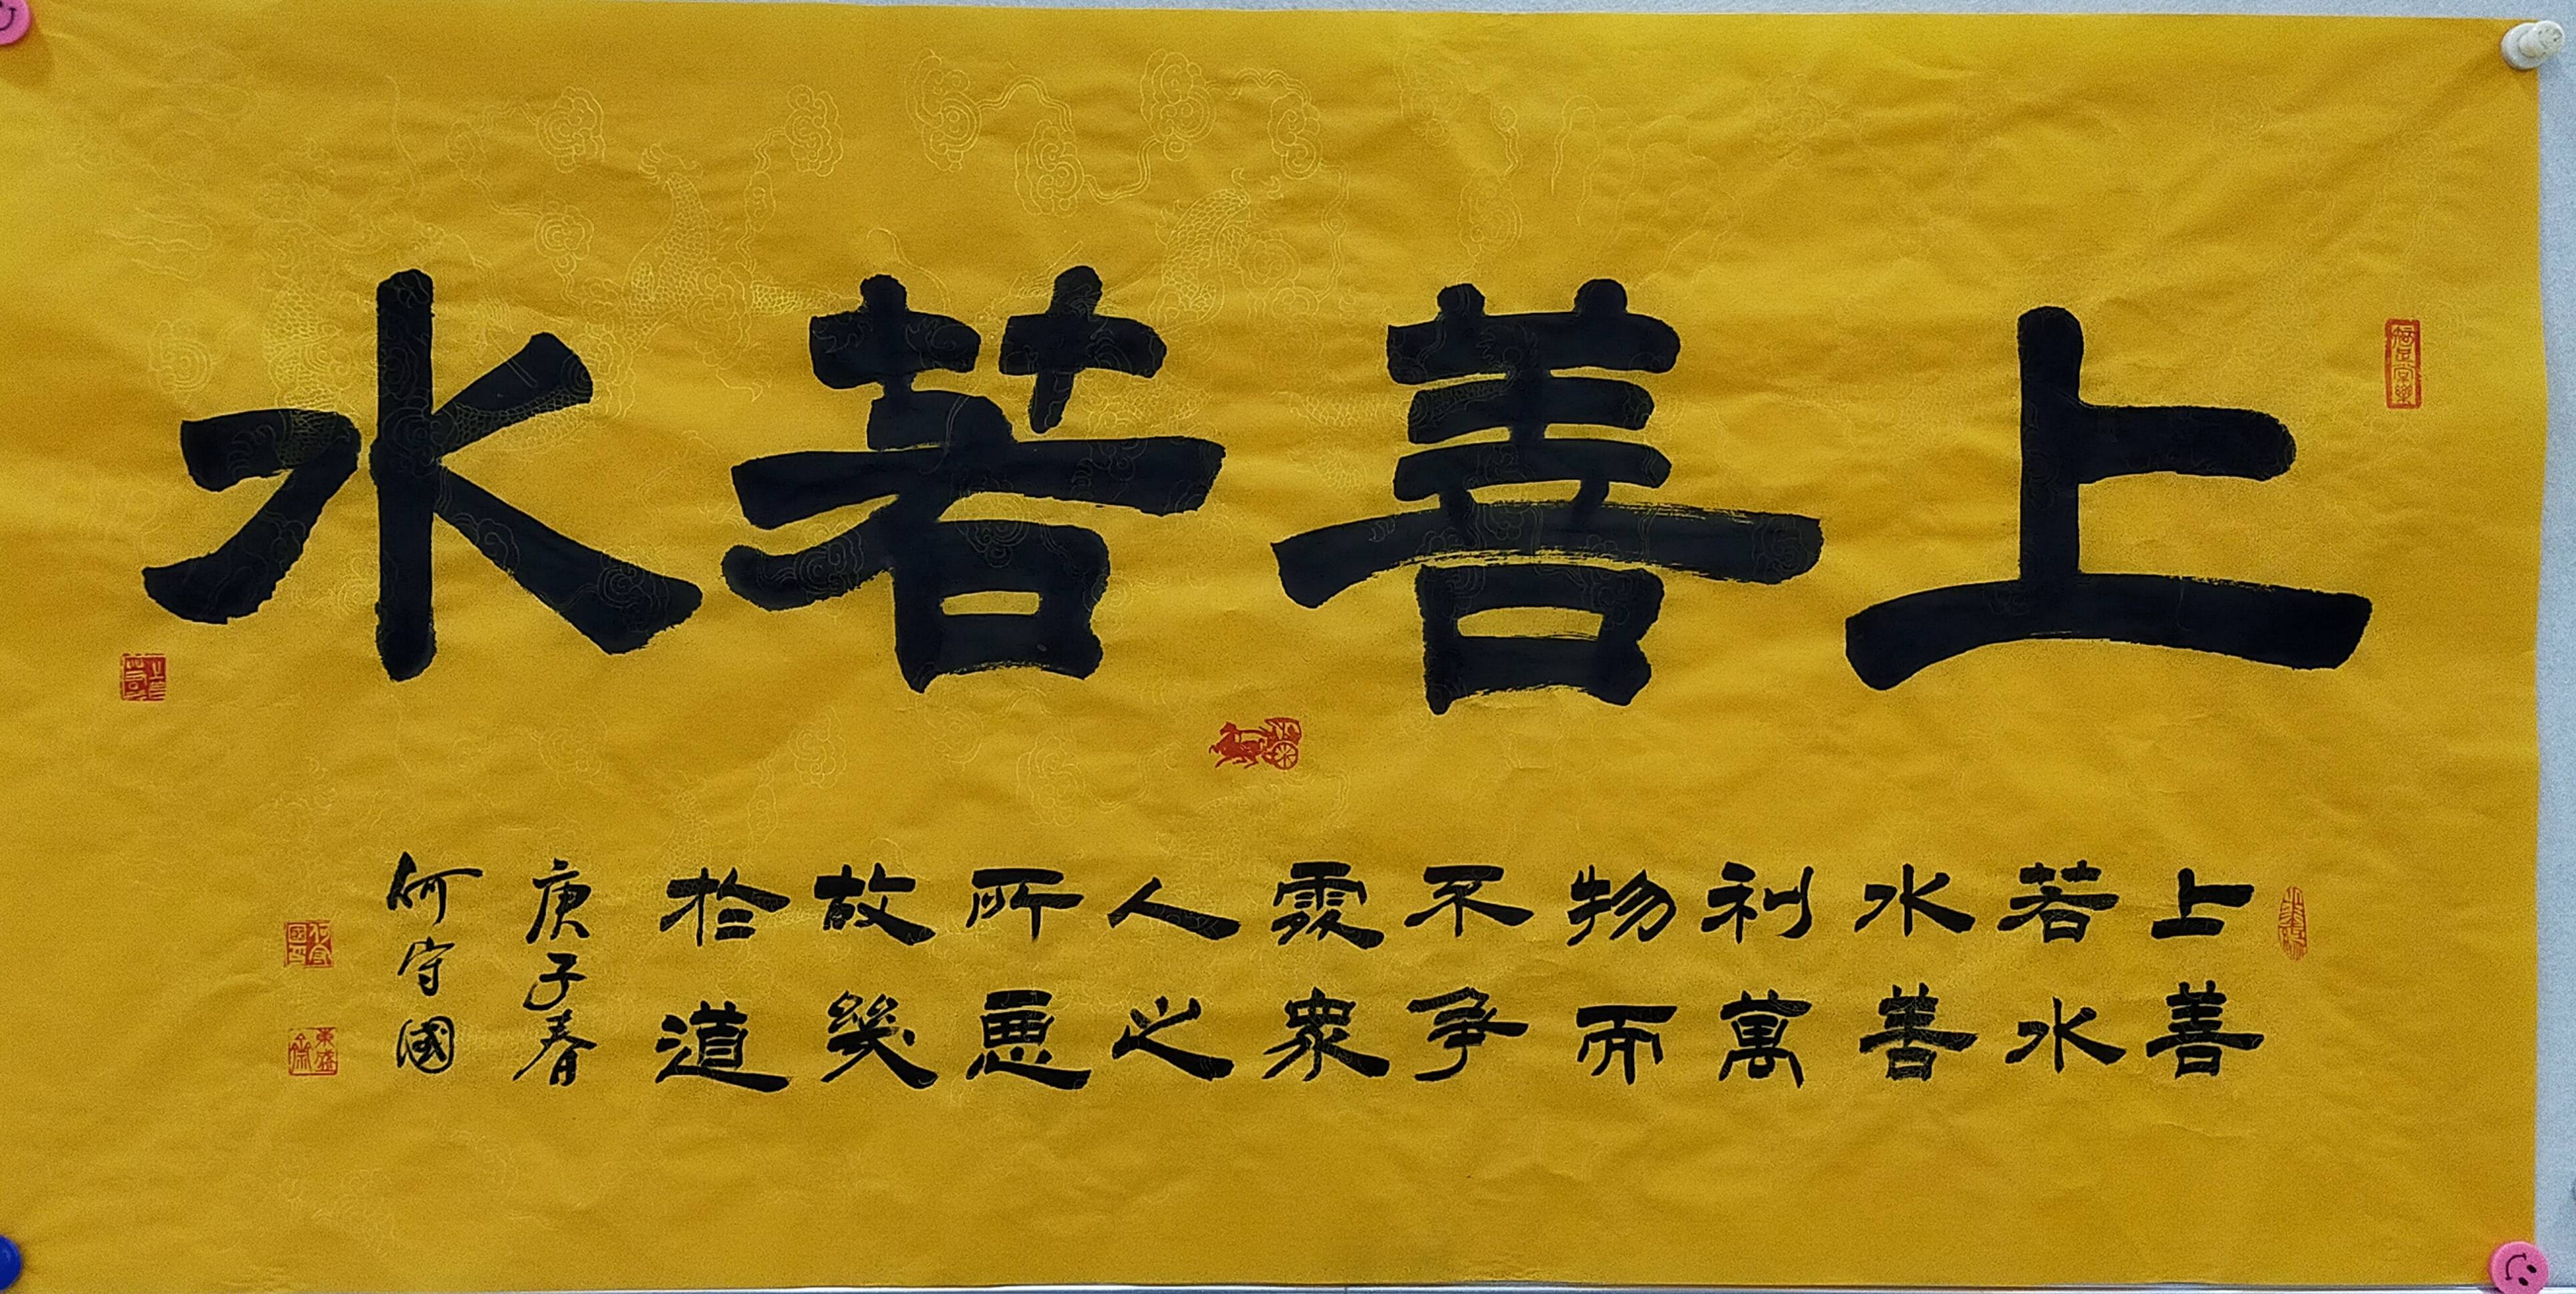 上善若水
上善
若水
水善
利萬
物而
不爭
處衆
人之
所惡
故幾
於道
庚子春
何守國
知足常樂